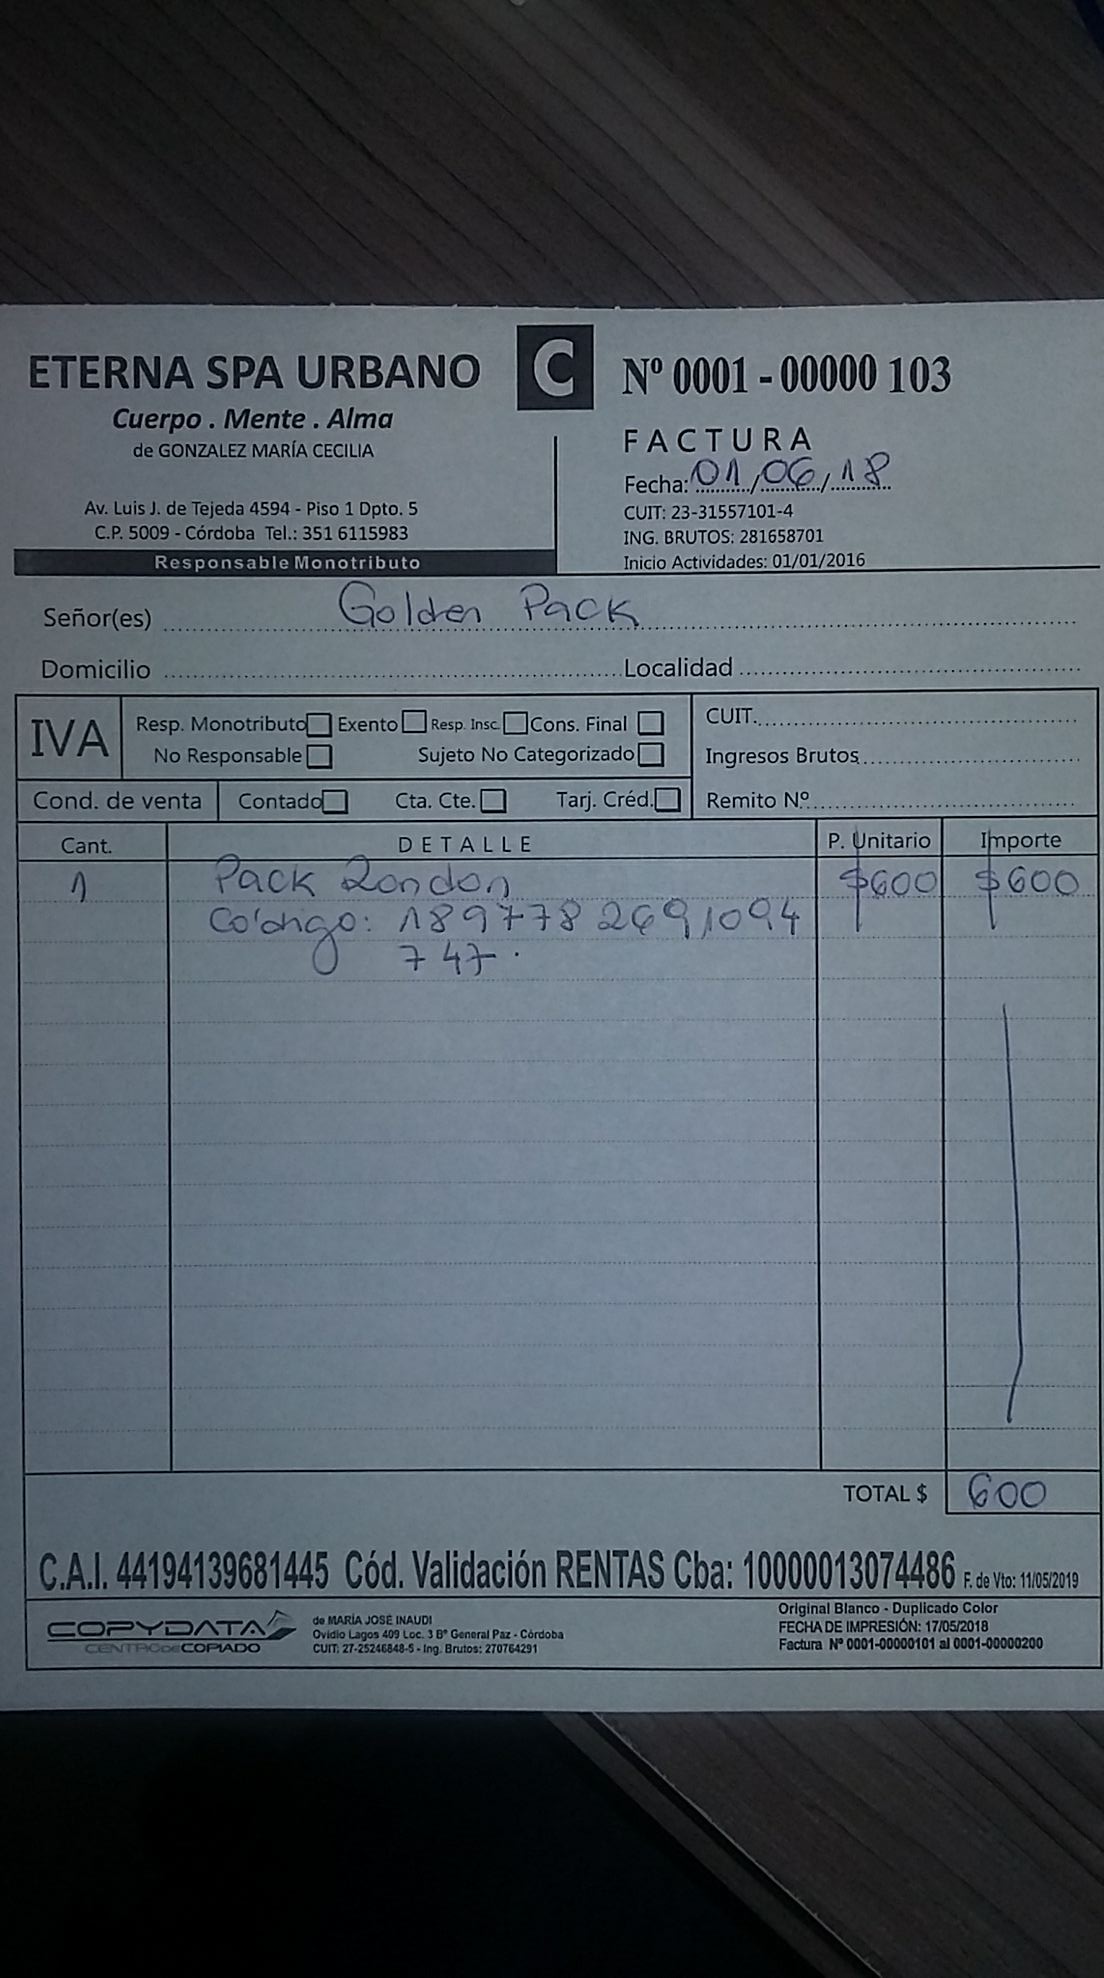 ETERNA SPA URBANO
Cuerpo . Mente . Alma
de GONZALEZ MARÍA CECILIA
Av. Luis J. de Tejeda 4594 - Piso 1 Dpto. 5
C.P. 5009 - Córdoba Tel.: 351 6115983
Responsable Monotributo
C
Nº 0001 - 00000 103
FACTURA
Fecha: 01/06/18
CUIT: 23-31557101-4
ING. BRUTOS: 281658701
Inicio Actividades: 01/01/2016
Señor(es) Golden Pack
Domicilio Localidad
IVA
Resp. Monotributo Exento Resp. Insc. Cons. Final
No Responsable Sujeto No Categorizado
CUIT.
Ingresos Brutos
Cond. de venta Contado Cta. Cte. Tarj. Créd. Remito Nº
Cant. DETALLE P. Unitario Importe
1 Pack London $600 $600
189778 2691094
747.
TOTAL $ 600
C.A.I. 44194139681445 Cód. Validación RENTAS Cba: 10000013074486 F. de Vto: 11/05/2019
COPYDATA
CENTRO DE COPIADO
de MARÍA JOSÉ INAUDI
Ovidio Lagos 409 Loc. 3 Bº General Paz - Córdoba
CUIT: 27-25246848-5 - Ing. Brutos: 270764291
Original Blanco - Duplicado Color
FECHA DE IMPRESIÓN: 17/05/2018
Factura Nº 0001-00000101 al 0001-00000200